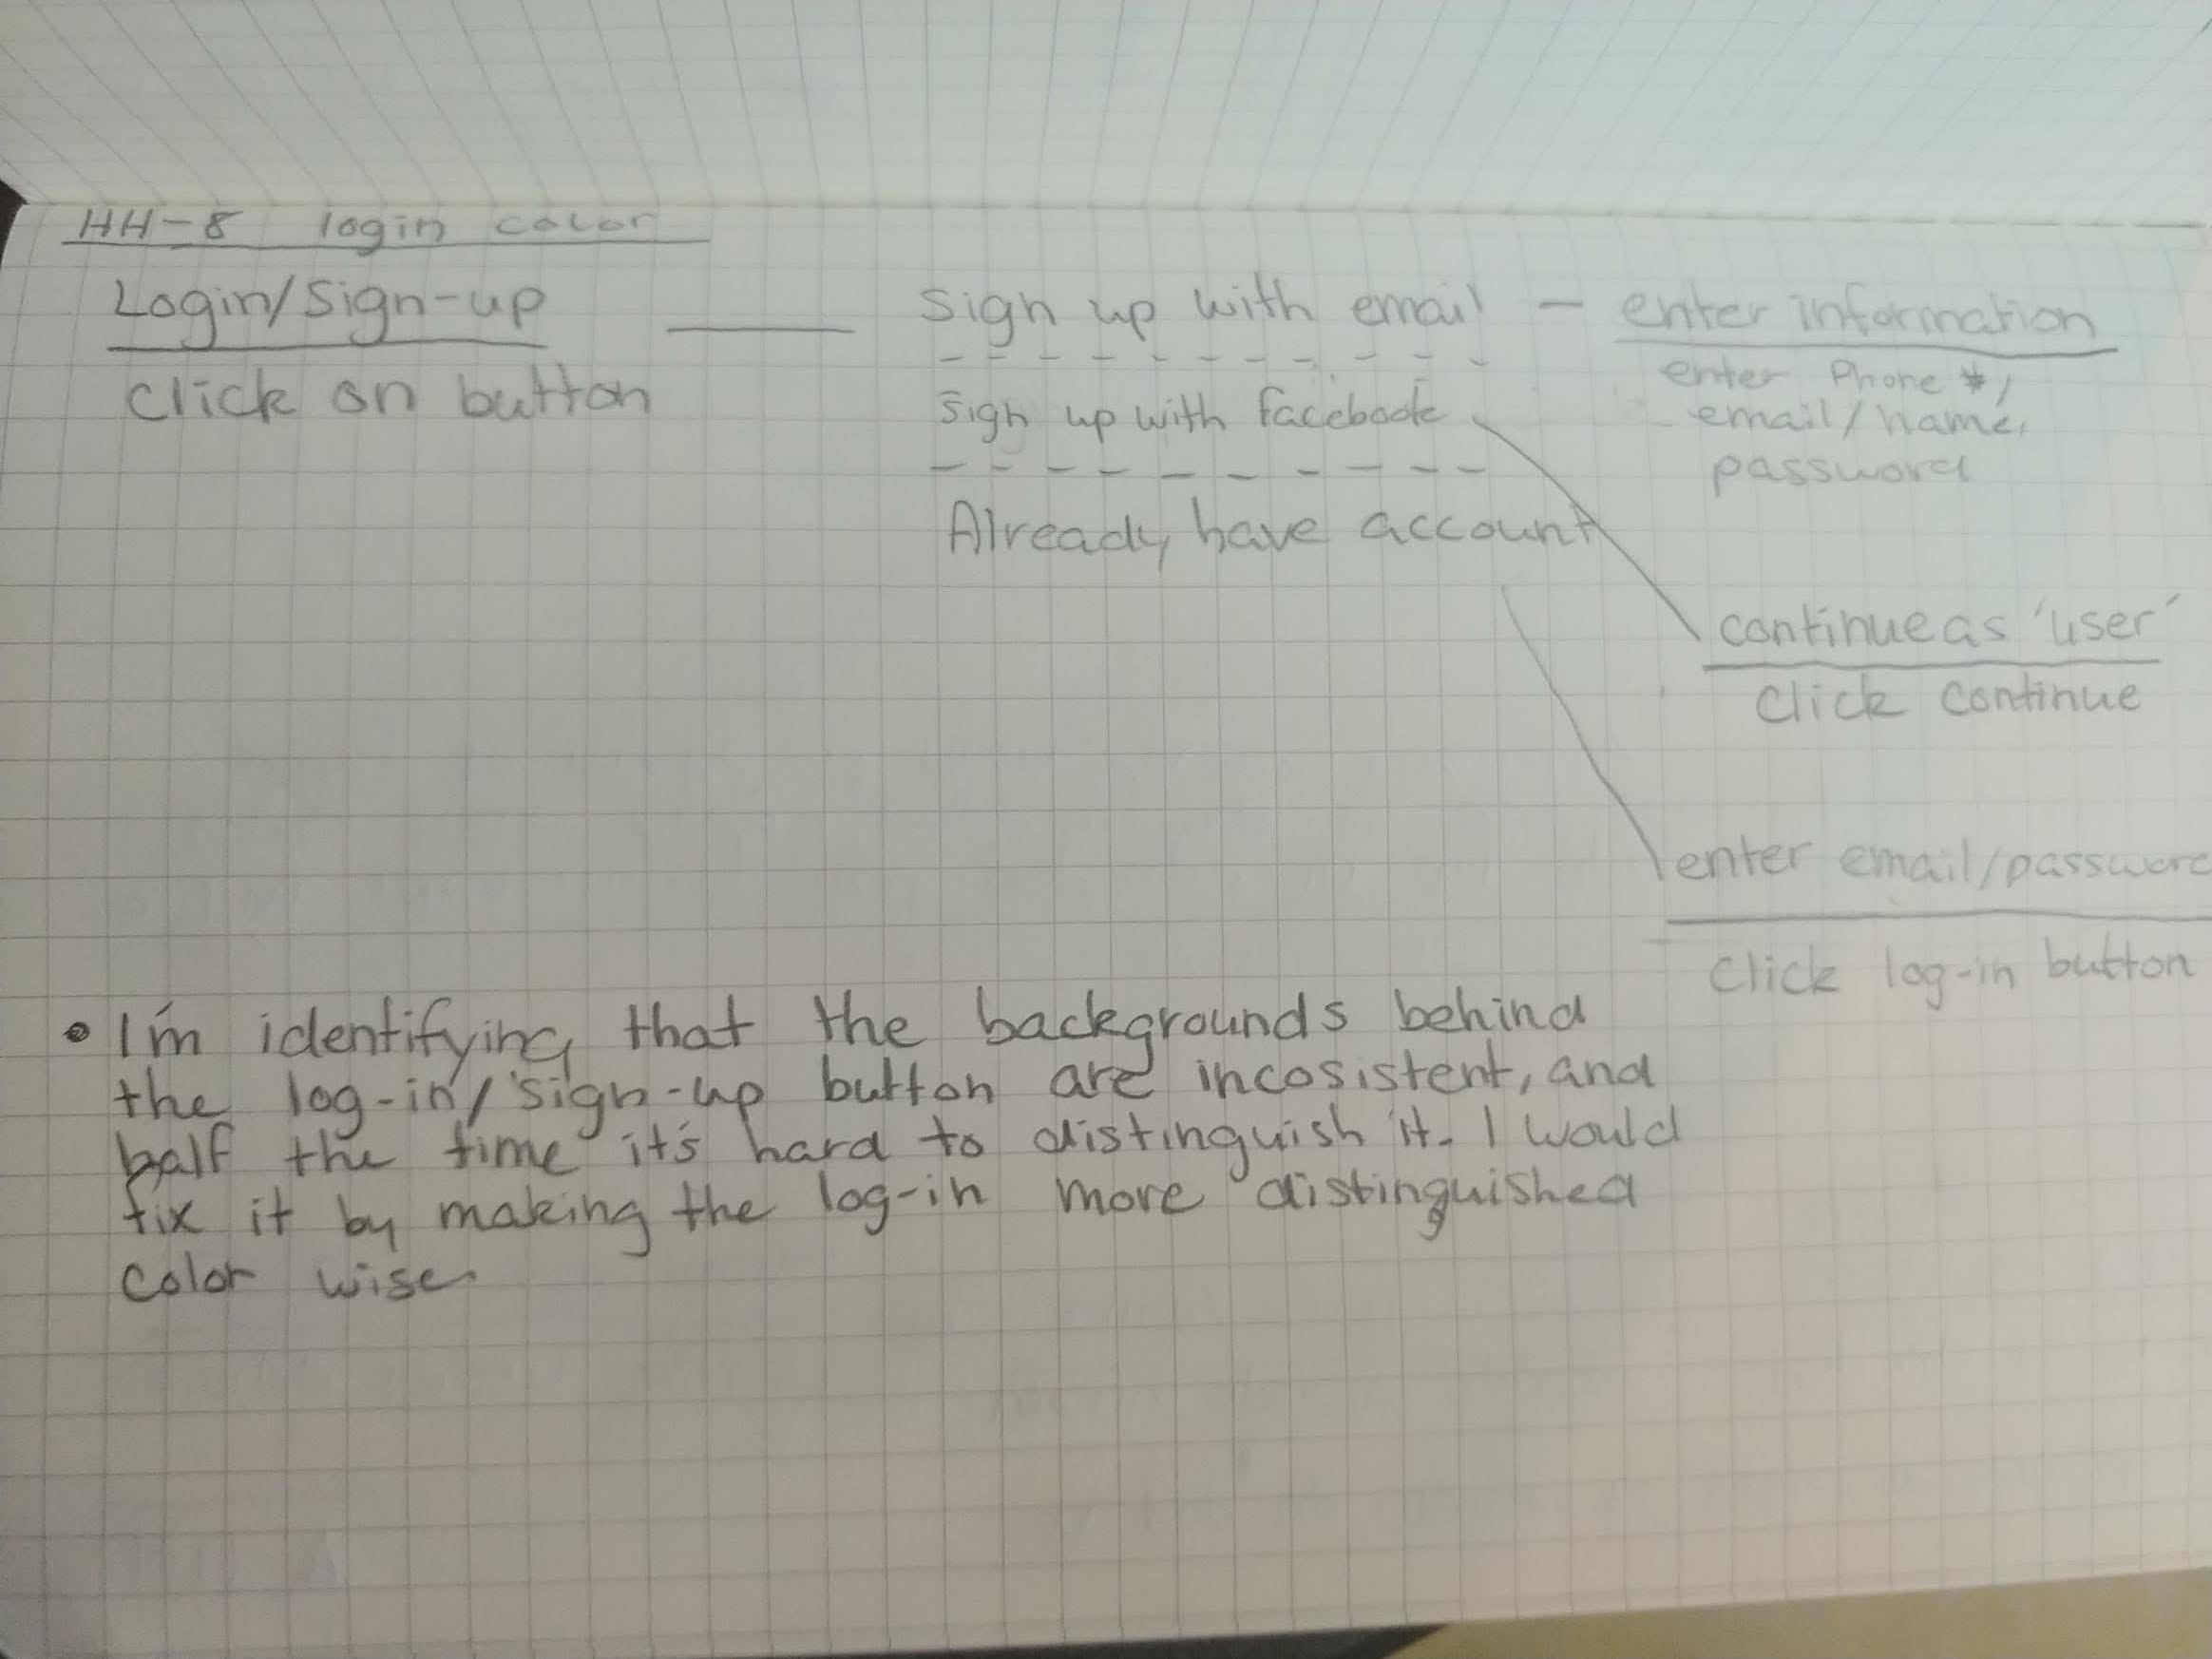 HH-8 login color
Login/Sign-up
click on button
Sign up with email - enter information
enter Phone #,
email/name,
password
Sign up with facebook
Already have account
continue as 'user'
click continue
enter email/passwor
click log-in button
• I'm identifying that the backgrounds behind
the log-in/sign-up button are incosistent, and
half the time it's hard to distinguish it. I would
fix it by making the log-in more distinguished
color wise